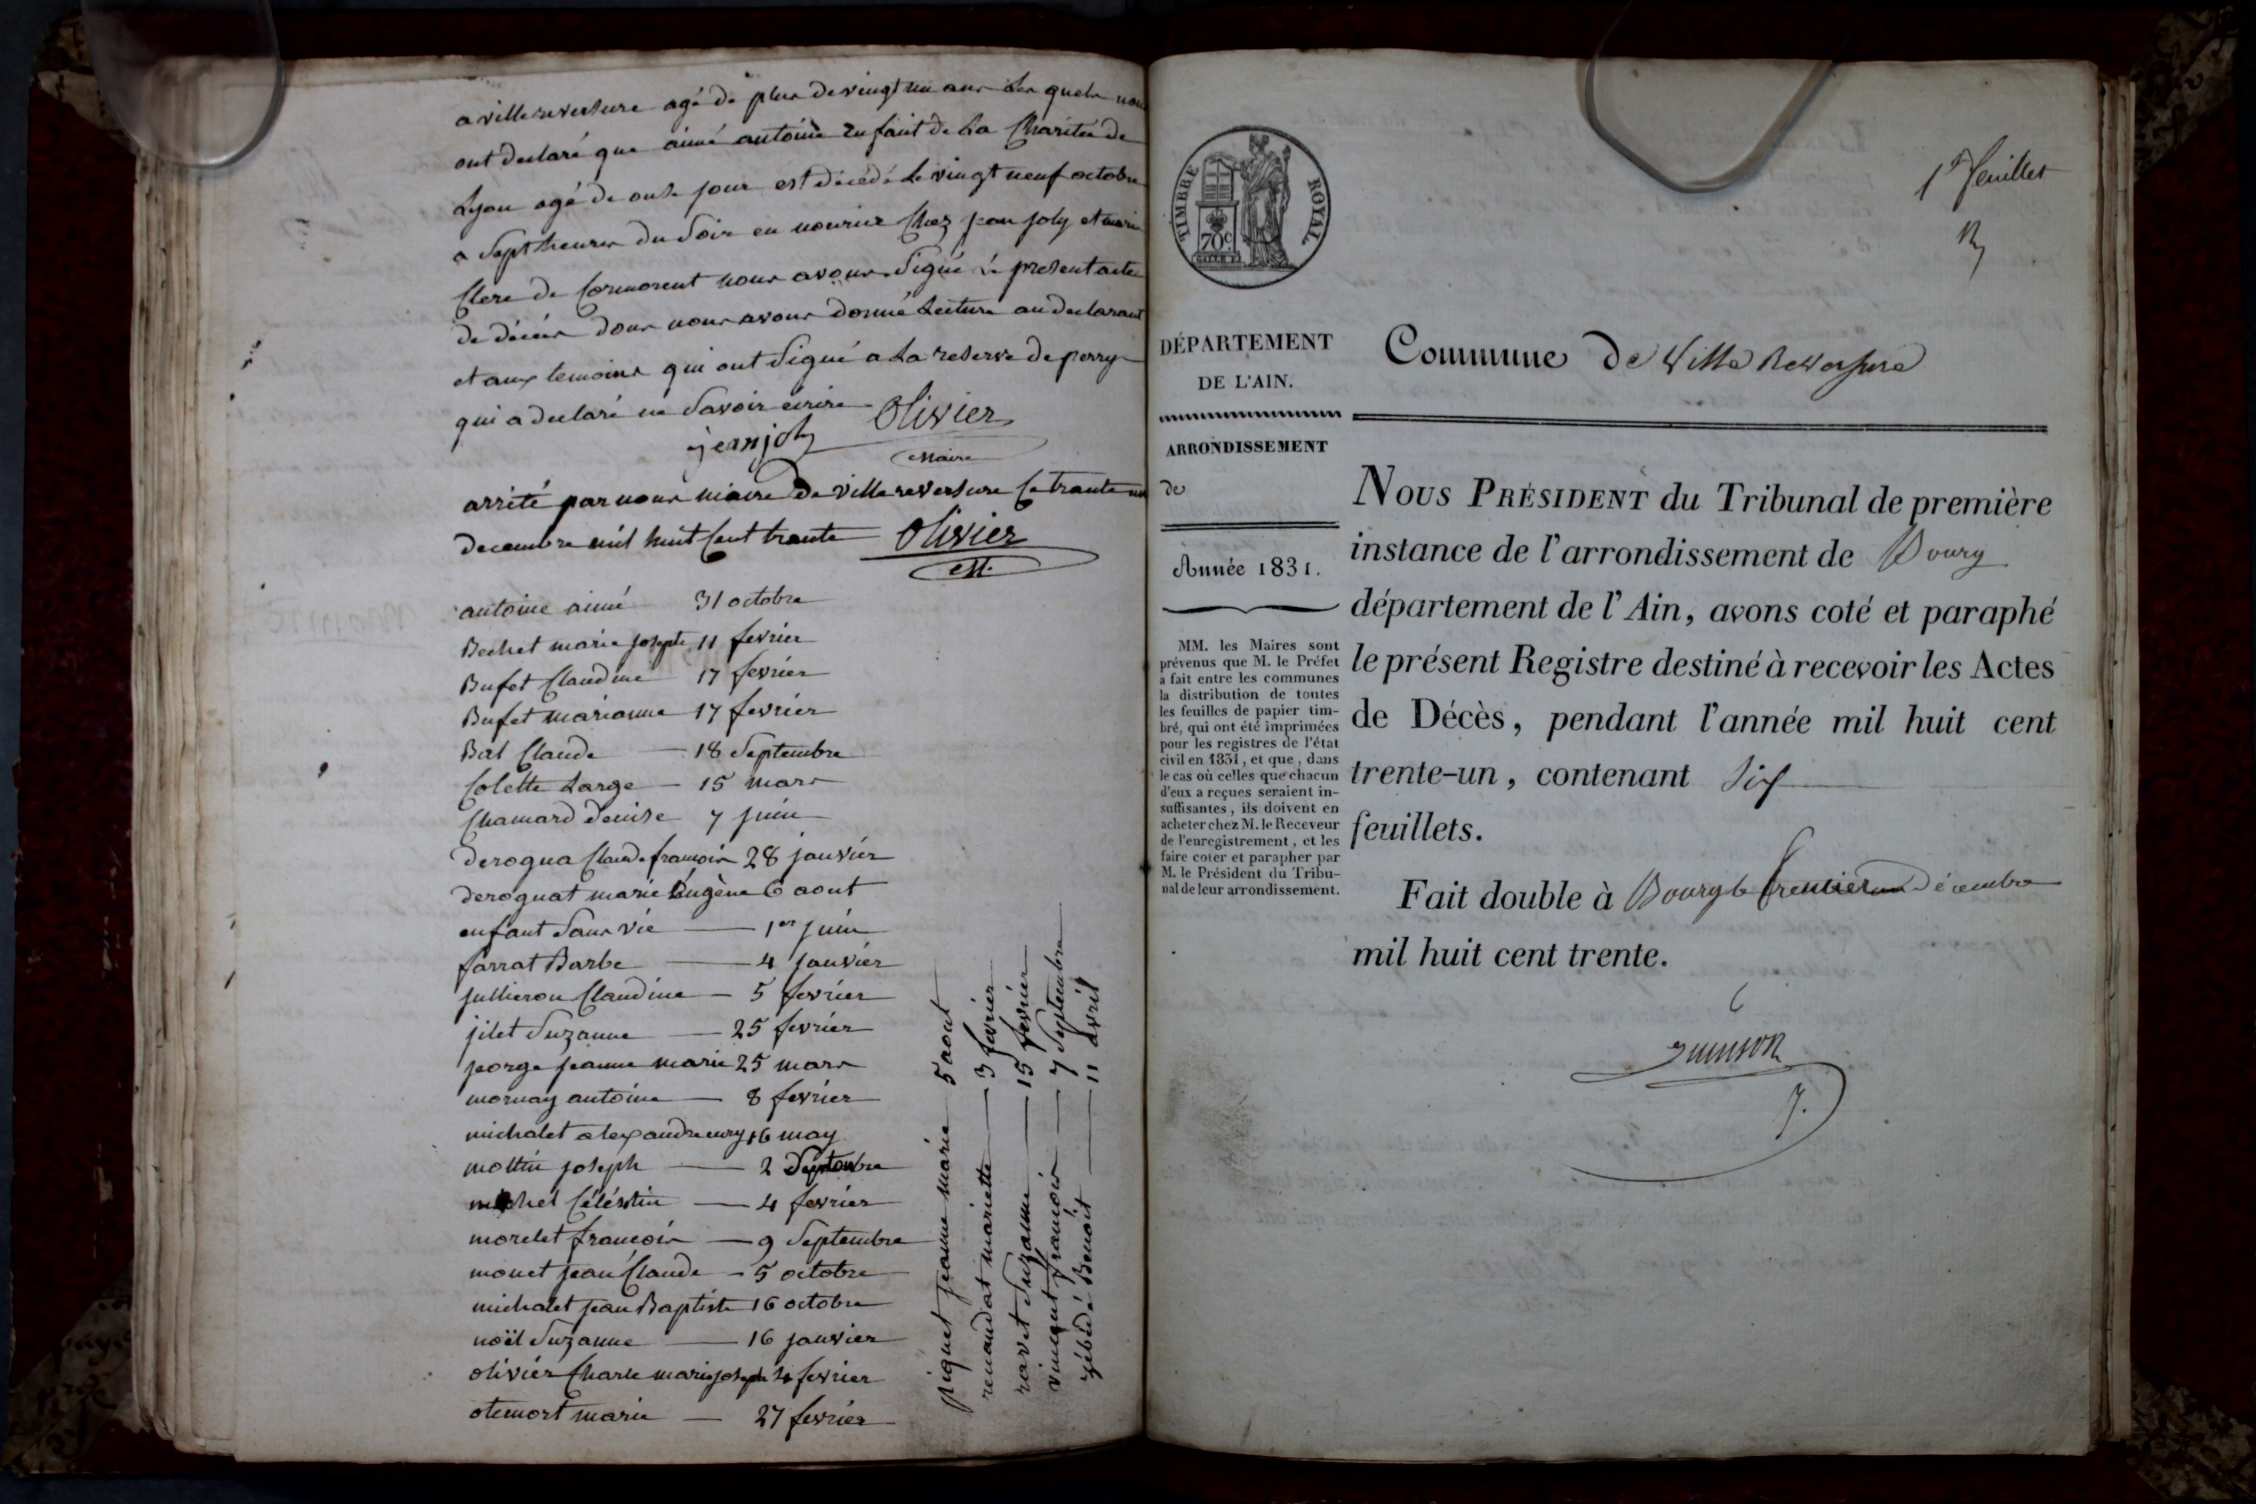 a villereversure agé de plus de vingt un ans les quels nous
ont declaré que aimé antoine enfant de La Charitée de
Lyon agé de onse jour est décédé Le vingt neuf octobre
a Sept heures du Soir en nourice Chez jean joly et marie
Clere de Cormorent nous avons Signé Le present acte
de décés dons nous avons donné Lecture au declarant
et aux temoins qui ont Signé a La reserve de perry
qui a declaré ne Savoir écrire Olivier
jean joly
Maire
arrêté par nous maire de villereversure Ce trante un
decembre mil huit Cent trante Olivier
M.
antoine aimé 31 octobre
Bechet marie josephe 11 fevrier
Bufet Claudine 17 fevrier
Bufet marianne 17 fevrier
Bal Claude — 18 Septembre
Colette Large — 15 mars
Chamard denise 7 juin
derogna Claude françois 28 janvier
derognat marie Eugène 6 aout
enfant Sans vie — 1er juin
farrat Barbe — 4 janvier
jullieron Claudine — 5 fevrier
jilet Suzanne — 25 fevrier
jeorge jeanne marie 25 mars
mornay antoine — 8 fevrier
michalet alexandre 16 may
mottin joseph — 2 Septembre
michel Céléstin — 4 fevrier
morelet françois — 9 Septembre
monet jean Claude — 5 octobre
michalet jean Baptiste 16 octobre
noël Suzanne — 16 janvier
olivier Charle marie joseph 4 fevrier
otemort marie — 27 fevrier
piquet jeanne marie 5 aout
renaudat mariette — 3 fevrier
ravet Suzanne — 15 fevrier
vincent françois — 7 Septembre
zébédé Benoit — 11 avril
TIMBRE ROYAL
70c
1er feuillet
DÉPARTEMENT
DE L'AIN.
ARRONDISSEMENT
de
Année 1831.
MM. les Maires sont
prévenus que M. le Préfet
a fait entre les communes
la distribution de toutes
les feuilles de papier tim-
bré, qui ont été imprimées
pour les registres de l'état
civil en 1831, et que, dans
le cas où celles que chacun
d'eux a reçues seraient in-
suffisantes, ils doivent en
acheter chez M. le Receveur
de l'enregistrement, et les
faire coter et parapher par
M. le Président du Tribu-
nal de leur arrondissement.
Commune de Ville Reversure
NOUS PRÉSIDENT du Tribunal de première
instance de l'arrondissement de Bourg
département de l'Ain, avons coté et paraphé
le présent Registre destiné à recevoir les Actes
de Décès, pendant l'année mil huit cent
trente-un, contenant Six
feuillets.
Fait double à Bourg le premier Décembre
mil huit cent trente.